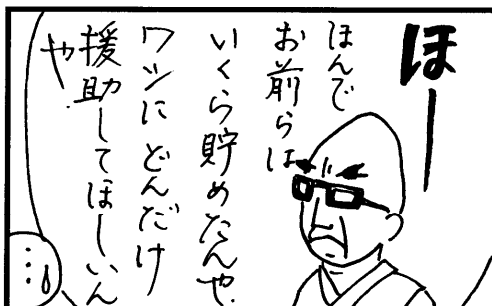 ほー
ほんで
お前らは
いくら貯めたんや.
ワシにどんだけ
援助してほしいん
や.
…。